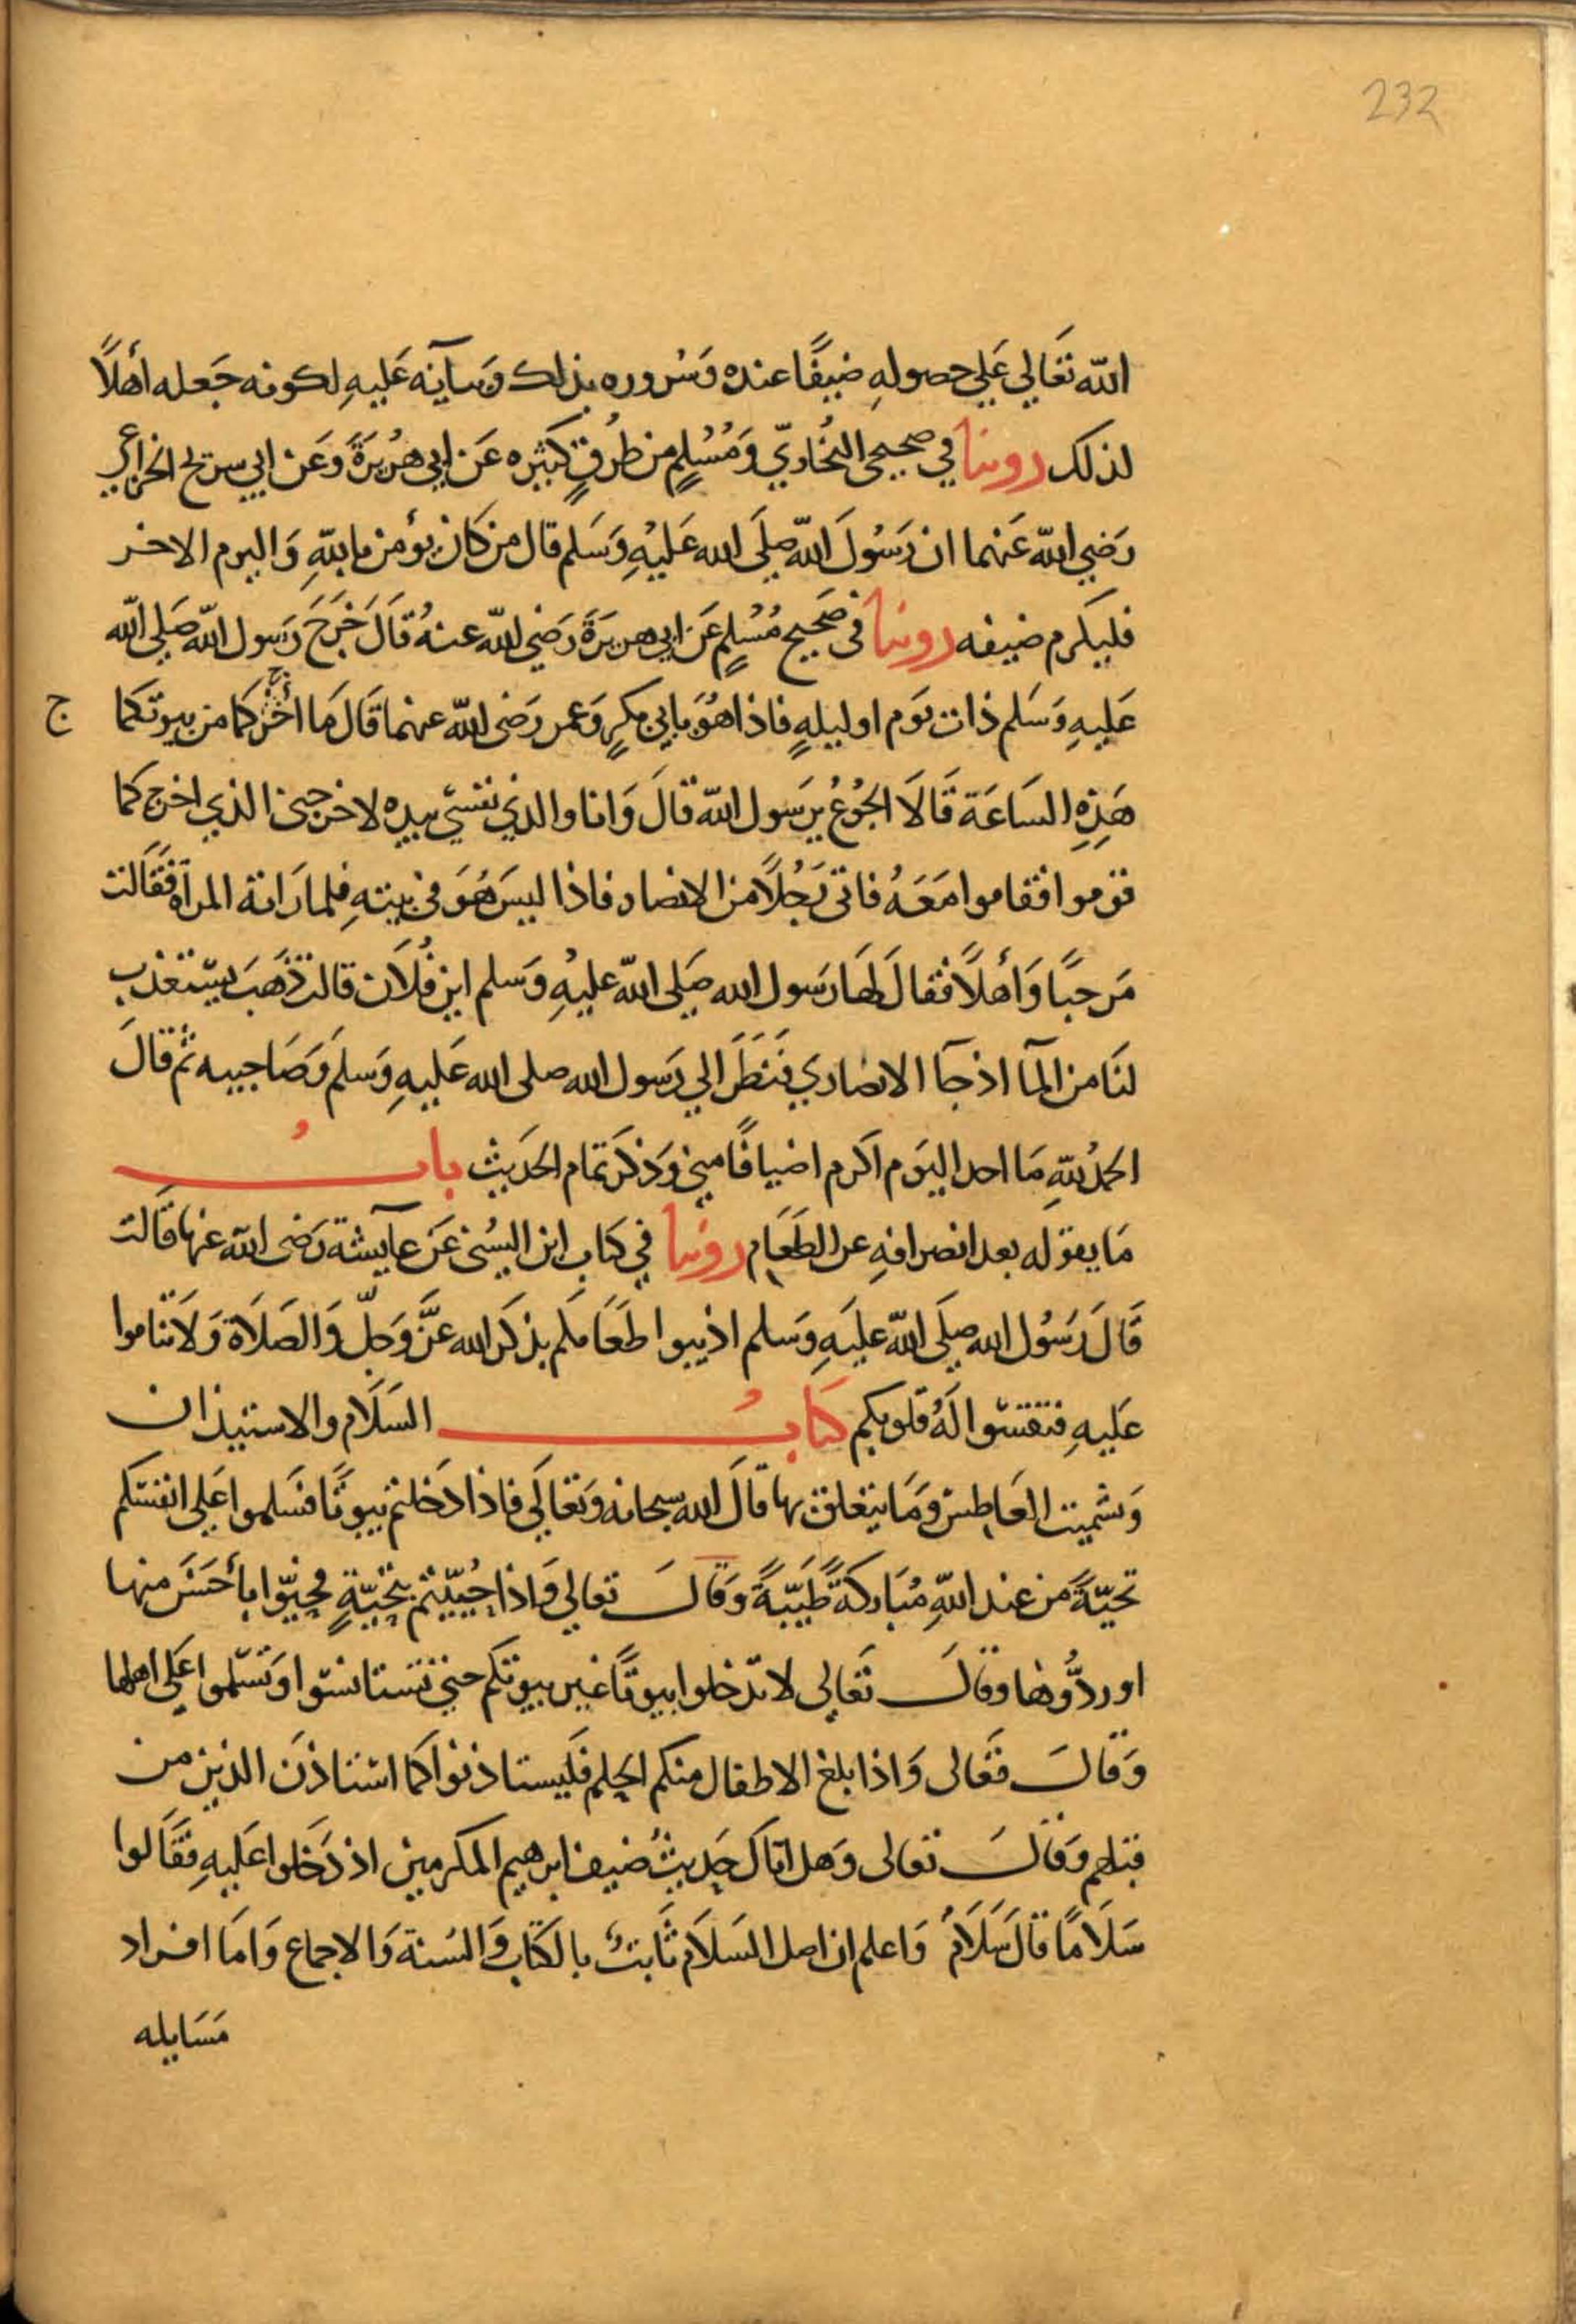 232
الله تَعَالي عَلي حصولهِ ضيفًا عنده وَسُروره بذلك وثنآيه عَليهِ لكونه جَعله أهلًا
لذلك روينا في صحيحي البُخاريّ وَمُسْلِمٍ من طُرقٍ كثيره عَن ابي هُريرَةَ وَعَن ابي سريح الخزاعي
رَضي الله عَنهما ان رَسُولَ الله صلَى الله عَليْهِ وَسَلم قال من كَان يؤمن بالله وَاليوم الاخر
فليكرم ضيفه روينا في صَحيح مُسْلمٍ عَن ابي هريرَةَ رَضي الله عنهُ قَالَ خَرَجَ رَسول الله صَلى الله
عَليهِ وَسَلم ذات يوَم او ليلهٍ فاذا هُوَ بابي بكرٍ وَعمر رَضى الله عنهما قَالَ مَا أخرَجكما من بيوتكما
ج
هَذِهِ السَاعَة قَالَا الجُوعُ يرَسول الله قالَ وَانا والذي نفسي بيده لاخرجني الذي اخرجكما
قوموا فقاموا مَعَهُ فاتى رَجُلًا من الانصار فاذا ليسَ هُوَ في بيتهِ فلما رَاته المرآة فقَالت
مَرحبًا وَأهلًا فقالَ لهَا رَسول الله صَلى الله عليْهِ وَسلم اين فُلَان قالت ذهَبَ يستعذب
لنَا من المآ اذ جَآ الانصَاري فنَظَرَ الي رَسول الله صلى الله عَليهِ وَسلمَ وَصَاحبيه ثمُ قالَ
الحمدُ للهِ مَا احد اليوَم اكرم اضيافًا مني وَذكَر تمَام الحَديث بابُ
مَا يقوله بعد انصرافهِ عن الطَعَام روينا في كتَابِ ابن السُني عَن عآيشة رَضى الله عنها قَالت
قَالَ رَسُول الله صلَى الله عليَهِ وَسلم اذيبوا طَعَامكم بذكر الله عَزَّ وَجلّ وَالصَلَاة وَلَا تناموا
عَليهِ فتقسوا لَهُ قلوبكم كتابُ السَلَام والاستيذان
وَتشميت العَاطِس وَمَا يتعلق بها قالَ الله سبحانه وَتعَالَي فاذا دَخلتم بيوتًا فسَلموا عَلى انفسكم
تحيّةً من عند اللهِ مُبَاركةً طَيّبَةً وَقَالَ تعالي وَاذا حُيّيتم بتحيّةٍ فحيّوا بأحسَنَ منها
او ردُّوهَا وقالَ تَعَالي لا تدخلوا بيوتًا غير بيوتكم حتي تستانسوا وَتسَلموا عَلى اهلها
وَقَالَ تعَالى وَاذا بلغ الاطفال منكم الحلم فَليستاذنوا كمَا استاذنَ الذين من
قبلهم وَقالَ تعَالى وَهل اتاك حَديثُ ضيف ابرهيم المكرمين اذ دَخلوا عَليهِ فقَالوا
سَلَامًا قالَ سَلَامٌ وَاعلم ان اصل السَلَام ثَابتٌ بالكتَابِ وَالسُنة وَالاجماع وَامَا افراد
مَسَايله